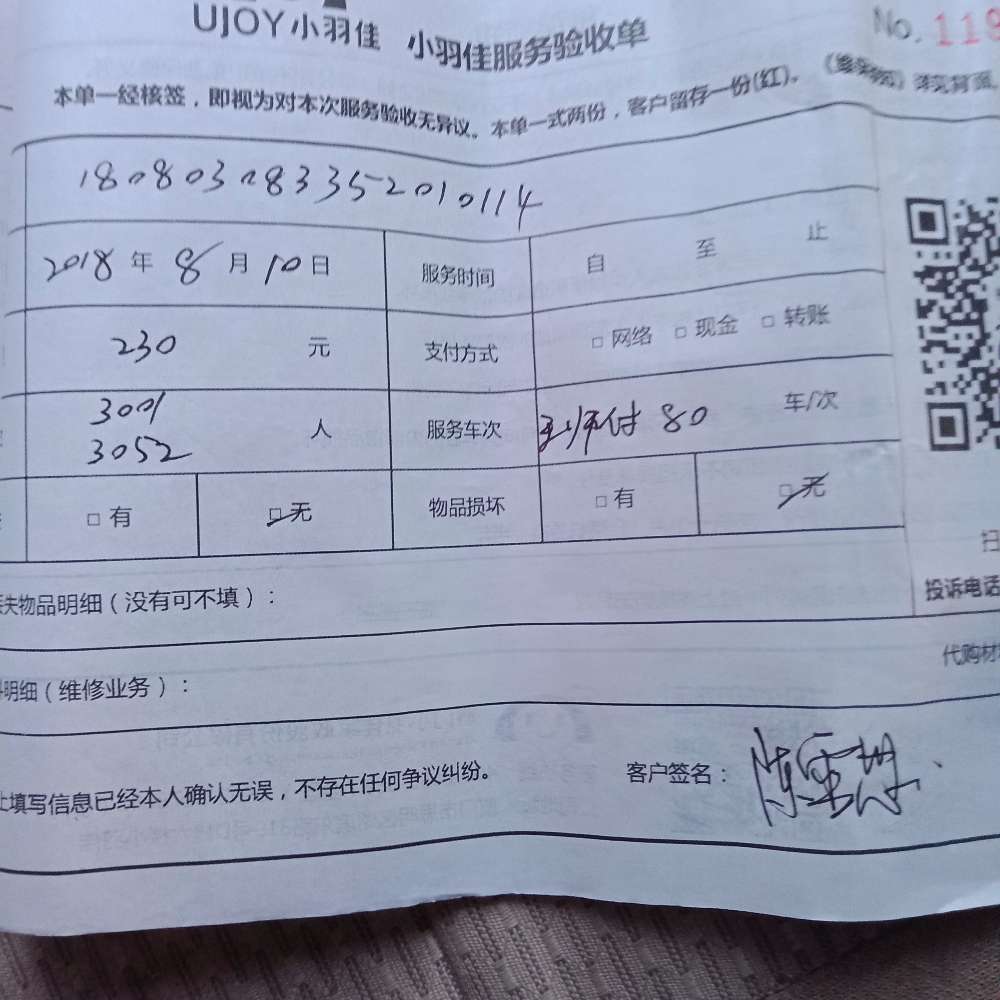 UJOY小羽佳 小羽佳服务验收单
No. 119
本单一经核签，即视为对本次服务验收无异议。本单一式两份，客户留存一份(红)。
180803083352010114
2018 年 8 月 10 日 服务时间 自 至 止
230 元 支付方式 □ 网络 □ 现金 □ 转账
3001
3052 人 服务车次 付 80 车/次
□ 有 □ 无 物品损坏 □ 有 □ 无
扫
失物品明细（没有可不填）：
投诉电话
代购材
明细（维修业务）：
填写信息已经本人确认无误，不存在任何争议纠纷。
客户签名：